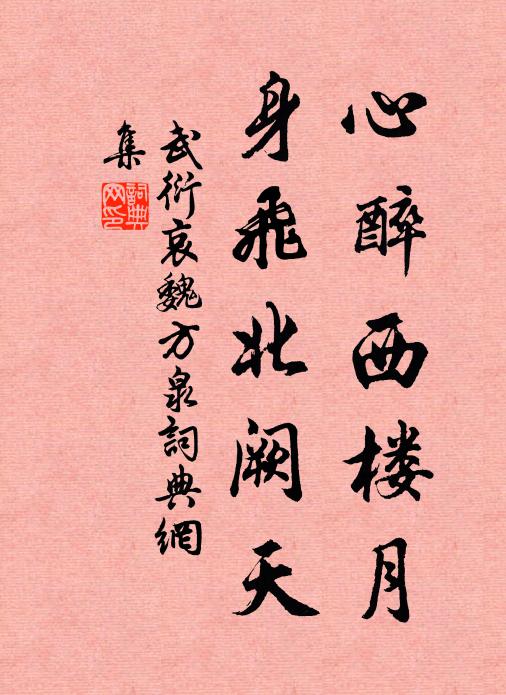 心醉西楼月
身飛北阙天
武衍哀魏方泉詞典網
集
詞典網印